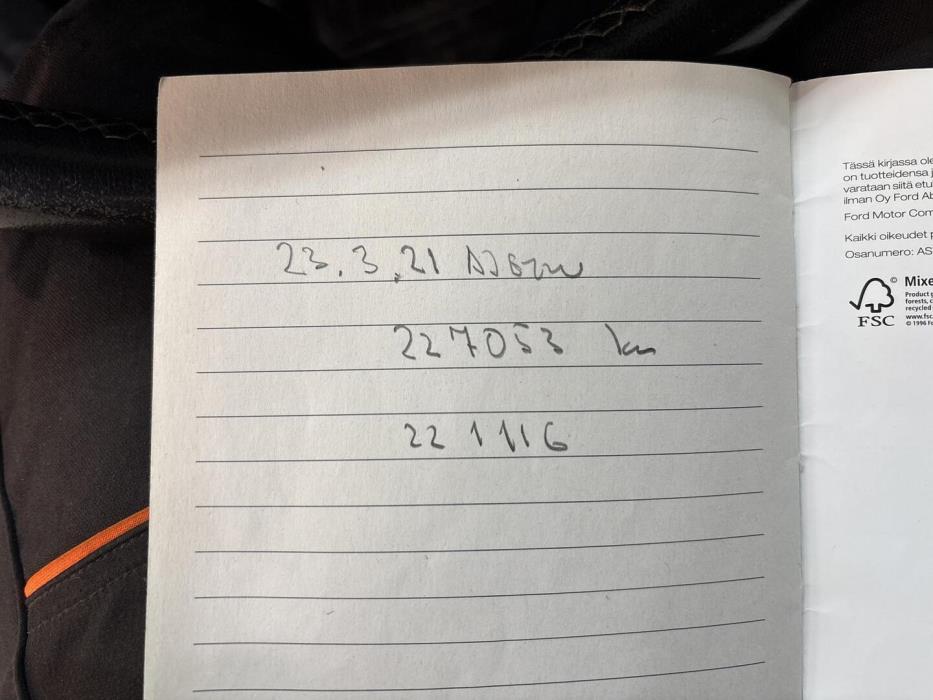 23.3.21
227053 km
221116
Tässä kirjassa ole
on tuotteidensa j
varataan siitä etu
ilman Oy Ford Ab
Ford Motor Com
Kaikki oikeudet p
Osanumero: AS
© Mixe
Product g
forests, c
recycled
www.fsc
© 1996 Fo
FSC